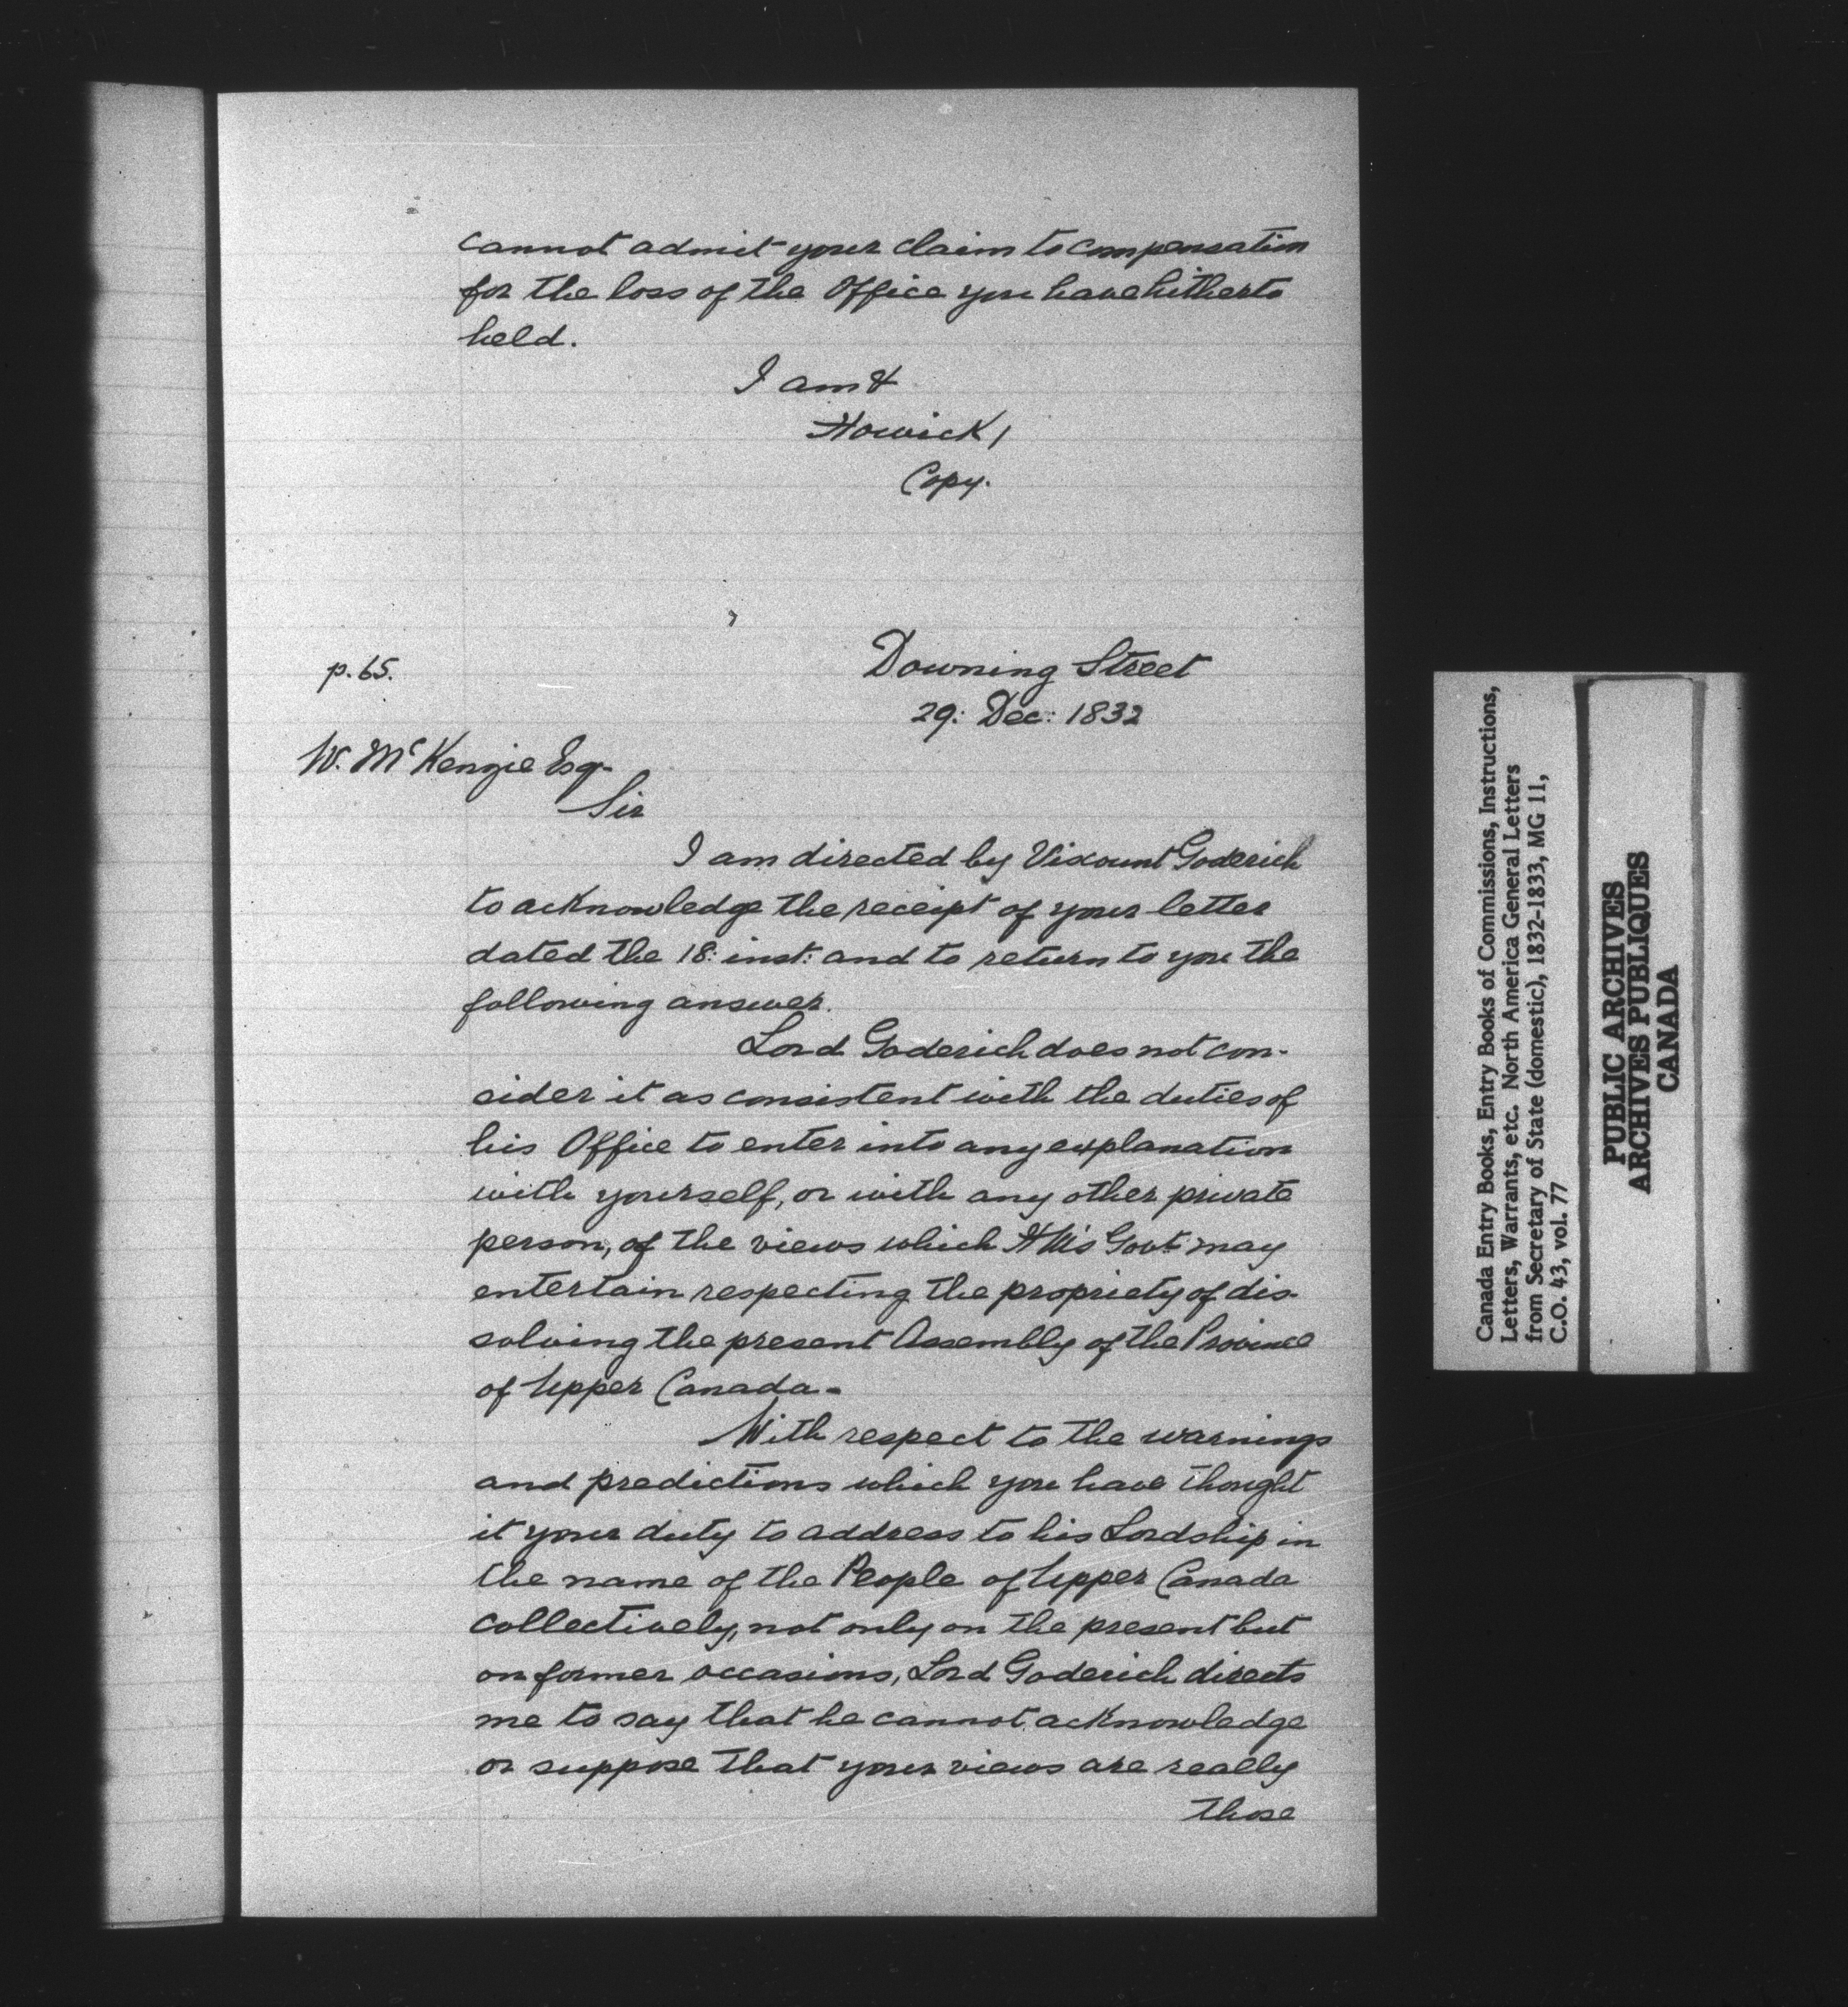 cannot admit your claim to compensation
for the loss of the Office you have hitherto
held.
I am &
Howick /
Copy.
p. 65.
Downing Street
29: Dec: 1832
W. McKenzie Esq-
Sir
I am directed by Viscount Goderich
to acknowledge the receipt of your letter
dated the 18: inst: and to return to you the
following answer.
Lord Goderich does not con-
sider it as consistent with the duties of
his Office to enter into any explanation
with yourself, or with any other private
person, of the views which HM's Govt may
entertain respecting the propriety of dis-
solving the present Assembly of the Province
of Upper Canada-
With respect to the warnings
and predictions which you have thought
it your duty to address to his Lordship in
the name of the People of Upper Canada
collectively, not only on the present but
on former occasions, Lord Goderich directs
me to say that he cannot acknowledge
or suppose that your views are really
those
Canada Entry Books, Entry Books of Commissions, Instructions,
Letters, Warrants, etc. North America General Letters
from Secretary of State (domestic), 1832-1833, MG 11,
C.O. 43, vol. 77
PUBLIC ARCHIVES
ARCHIVES PUBLIQUES
CANADA